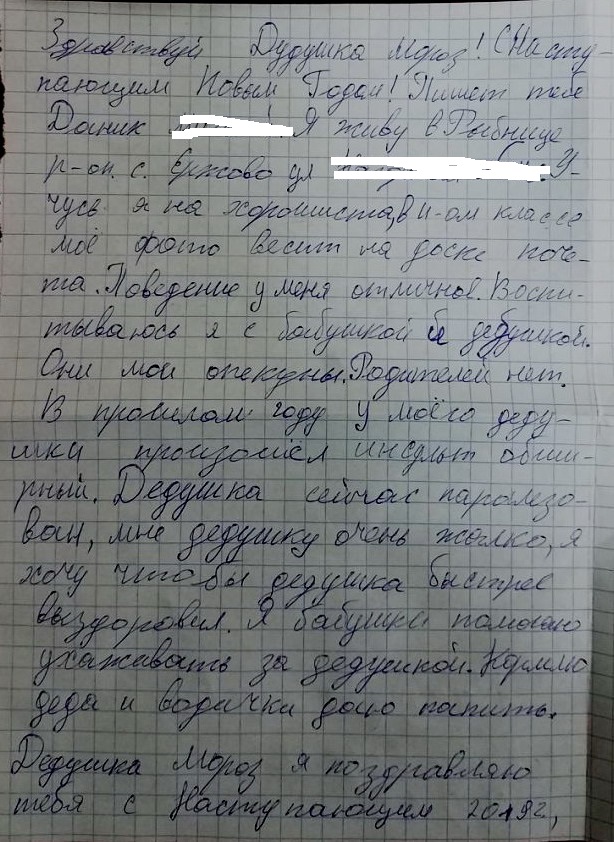 Здравствуй Дудушка Мороз! С Насту-
пающим Новым Годом! Пишет тебе
Даник Я живу в Рыбнице
р-он. с. Ержово ул У-
чусь я на хорошиста, в 4-ом классе
моё фото весит на доске поче-
та. Поведение у меня отличное. Воспи-
тываюсь я с бабушкой и дедушкой.
Они мои опекуны. Родителей нет.
В прошлом году у моего деду-
шки произошёл инсульт обши-
рный. Дедушка сейчас парализо-
ван, мне дедушку очень жалко, я
хочу чтобы дедушка быстрее
выздоровил. Я бабушки помогаю
ухаживать за дедушкой. Кормлю
деда и водички даю папить.
Дедушка Мороз я поздравляю
тебя с Наступающим 2019г,